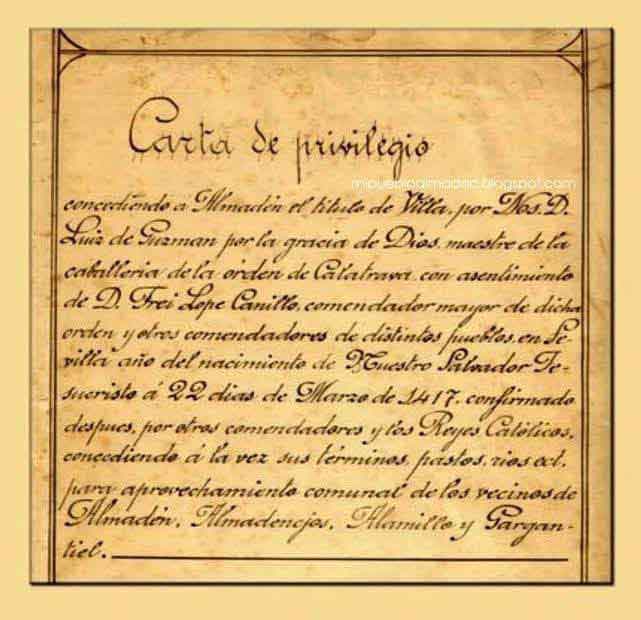 Carta de privilegio
mipuebloalmaden.blogspot.com
concediendo á Almadén el título de Villa, por Nos. D.
Luiz de Guzman por la gracia de Dios, maestre de la
caballeria de la órden de Calatrava con asentimiento
de D. Frei Lope Canillo, comendador mayor de dicha
orden y otros comendadores de distintos pueblos, en Se-
villa año del nacimiento de Nuestro Salvador Je-
sucristo á 22 dias de Marzo de 1417, confirmado
despues, por otros comendadores y los Reyes Católicos,
concediendo á la vez sus términos, pastos, rios ect.
para aprovechamiento comunal de los vecinos de
Almadén, Almadenejos, Alamillo y Gargan-
tiel.